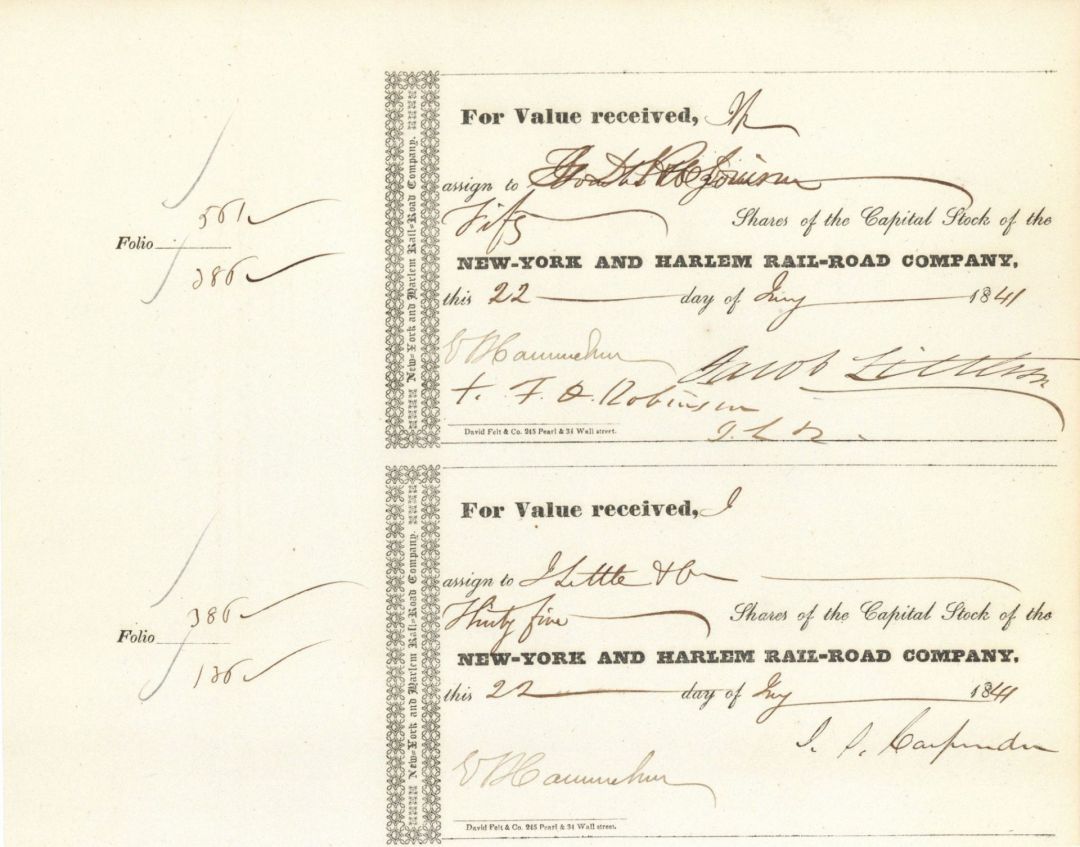 For Value received, We
assign to
Fifty Shares of the Capital Stock of the
NEW-YORK AND HARLEM RAIL-ROAD COMPANY,
this 22 day of 1841
Folio 561
386
New-York and Harlem Rail-Road Company.
Jacob Little
F. O. Robinson
David Felt & Co. 245 Pearl & 34 Wall street.
For Value received, I
assign to J Little & Co
Thirty five Shares of the Capital Stock of the
NEW-YORK AND HARLEM RAIL-ROAD COMPANY,
this 22 day of 1841
Folio 386
136
New-York and Harlem Rail-Road Company.
David Felt & Co. 245 Pearl & 34 Wall street.